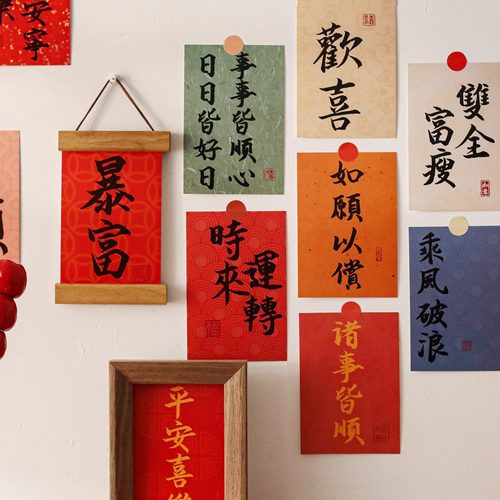 安寧
暴富
事事皆順心
日日皆好日
歡喜
雙全
富瘦
時來
運轉
如願以償
乘風破浪
諸事皆順
平安喜